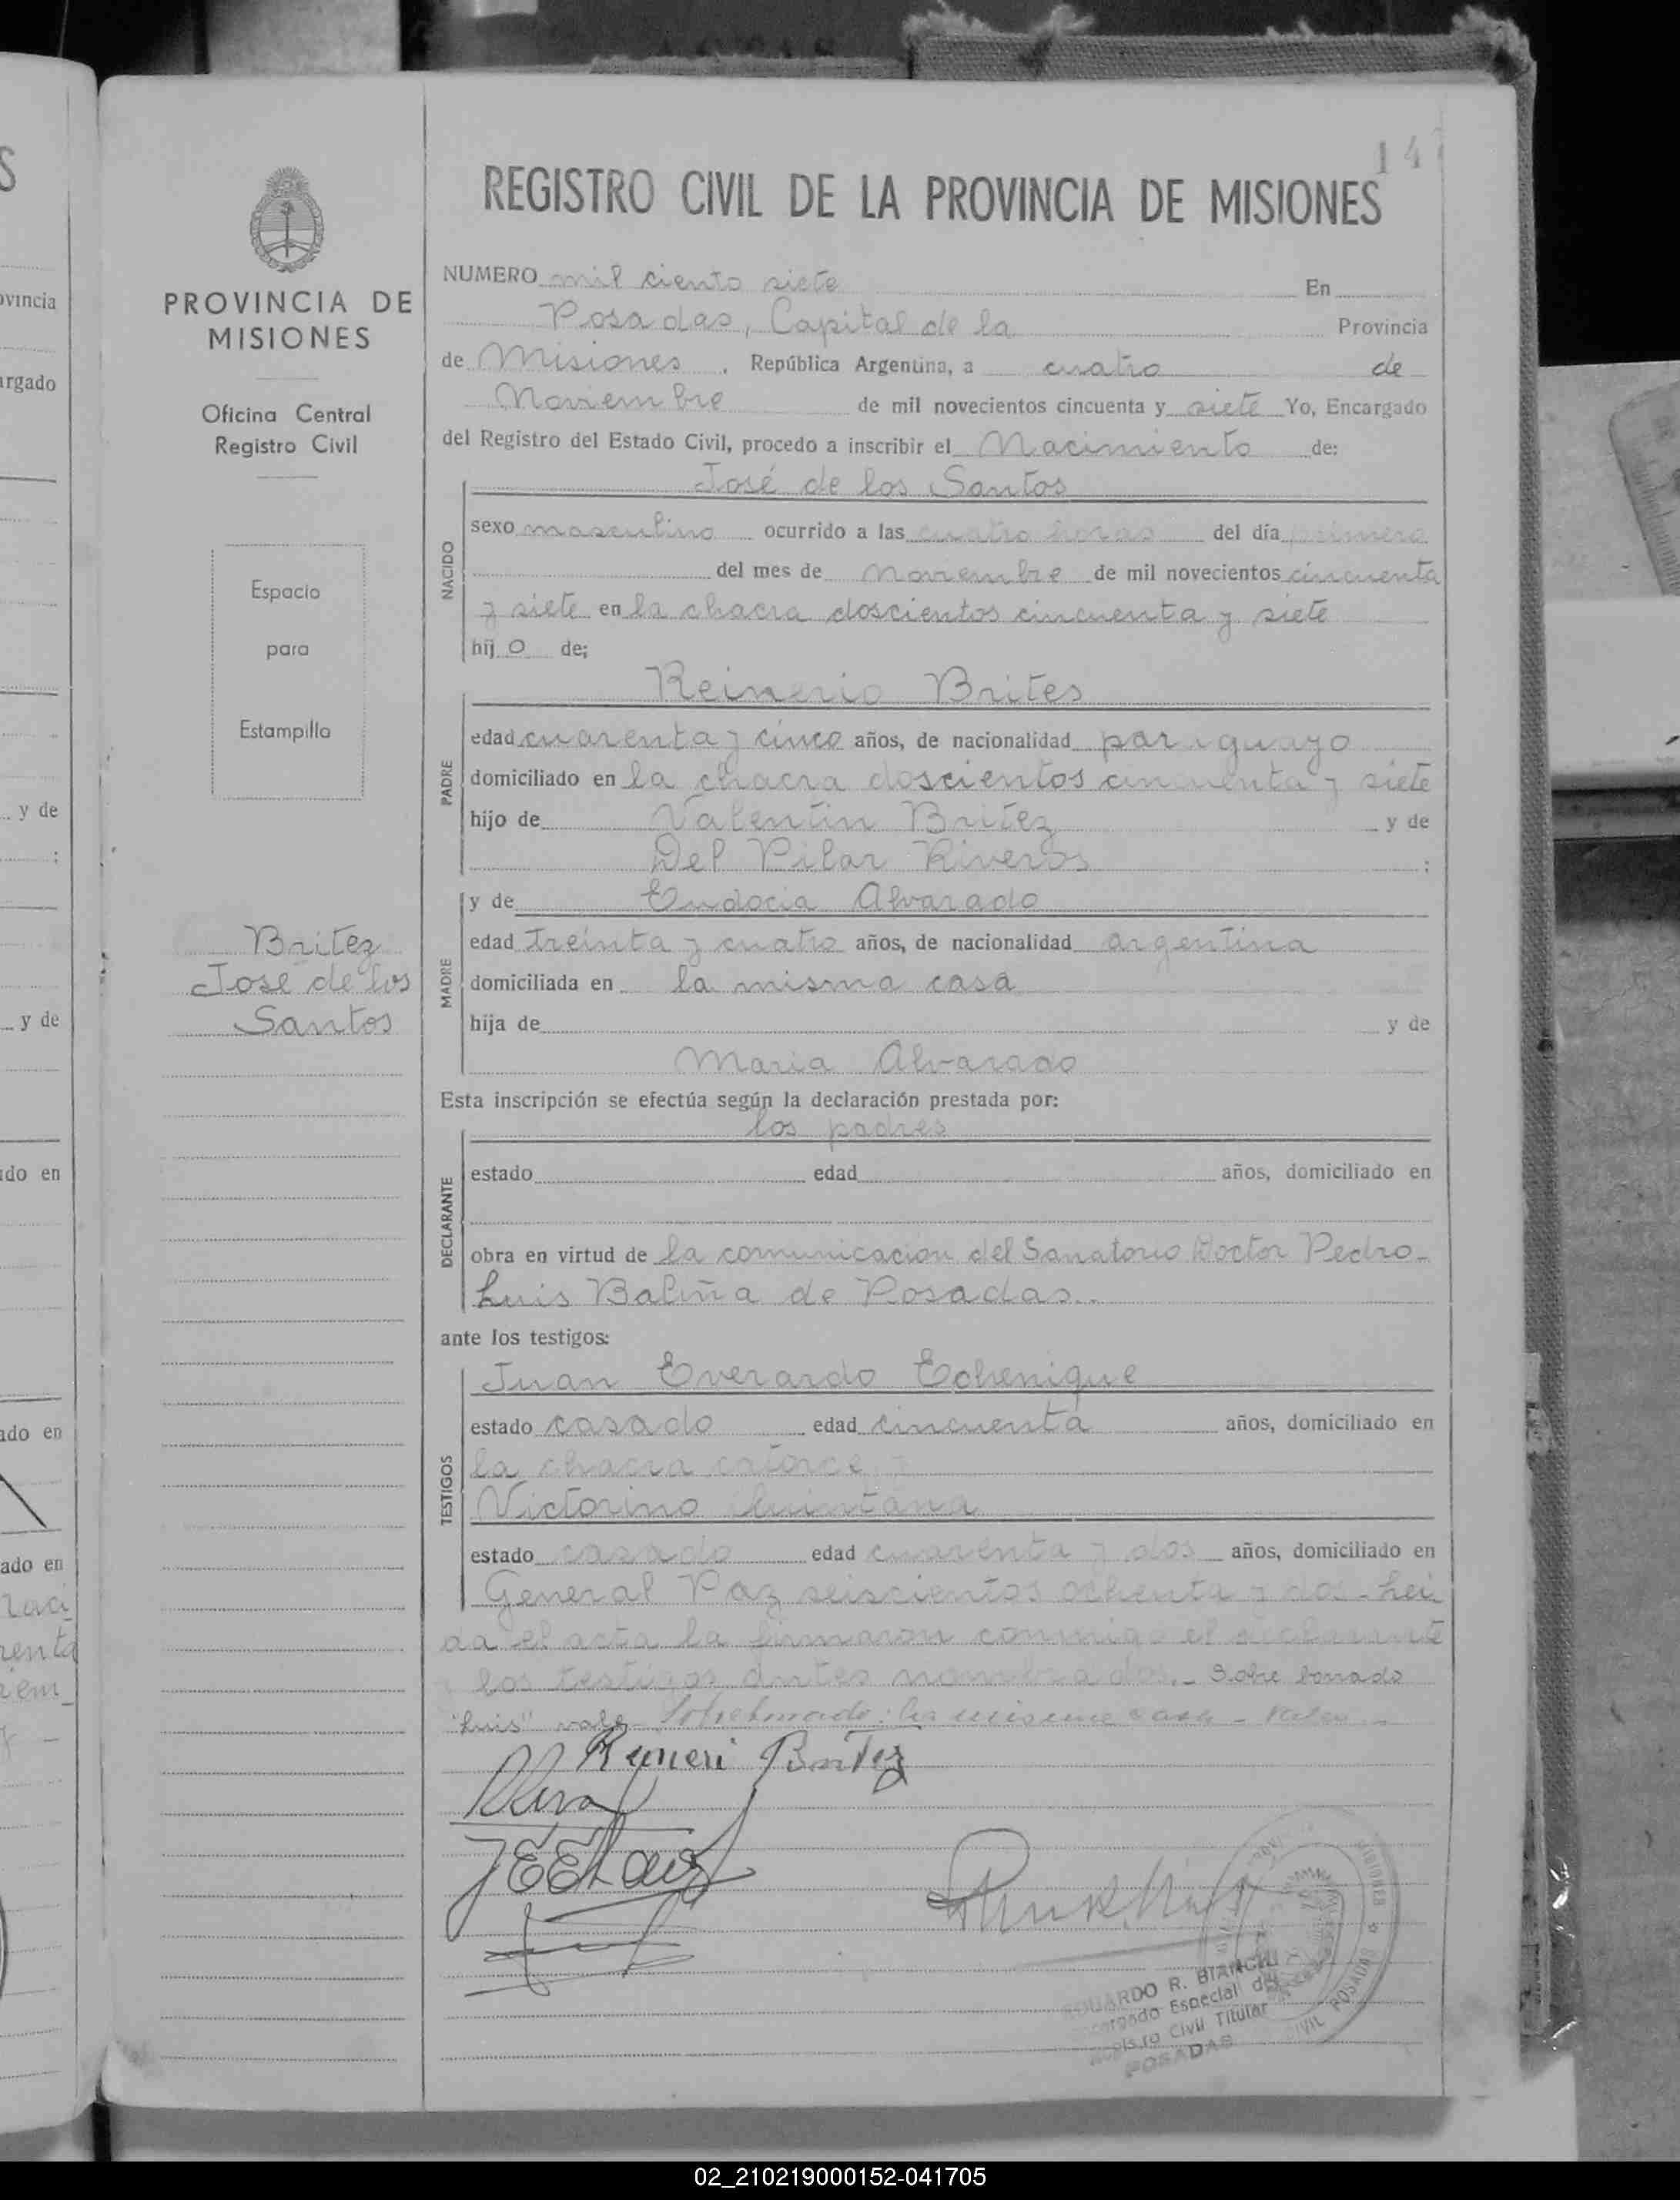 147
REGISTRO CIVIL DE LA PROVINCIA DE MISIONES
PROVINCIA DE
MISIONES
Oficina Central
Registro Civil
Espacio
para
Estampilla
Britez
Jose de los
Santos
NUMERO mil ciento siete En
Posadas, Capital de la Provincia
de Misiones, República Argentina, a cuatro de
Noviembre de mil novecientos cincuenta y siete Yo, Encargado
del Registro del Estado Civil, procedo a inscribir el Nacimiento de:
José de los Santos
NACIDO
sexo masculino ocurrido a las cuatro horas del día primero
del mes de Noviembre de mil novecientos cincuenta
y siete en la chacra doscientos cincuenta y siete
hij o de;
Reinerio Brites
PADRE
edad cuarenta y cinco años, de nacionalidad paraguayo
domiciliado en la chacra doscientos cincuenta y siete
hijo de Valentin Britez y de
Del Pilar Riveros ;
MADRE
y de Eudocia Alvarado
edad treinta y cuatro años, de nacionalidad argentina
domiciliada en la misma casa
hija de y de
Maria Alvarado
Esta inscripción se efectúa según la declaración prestada por:
los padres
DECLARANTE
estado edad años, domiciliado en
obra en virtud de la comunicación del Sanatorio Doctor Pedro-
Luis Baliña de Posadas..
ante los testigos:
TESTIGOS
Juan Everardo Echenique
estado casado edad cincuenta años, domiciliado en
la chacra catorce y
Victorino Quintana
estado casado edad cuarenta y dos años, domiciliado en
General Paz seiscientos ochenta y dos - Lei
da el acta la firmaron conmigo el declarante
y los testigos antes nombrados.- Sobre borrado
"Luis" vale - Sobrebrrado: la misma casa - Vale -
Reineri Britez
EDUARDO R. BIANCHI
Encargado Especial del
Registro Civil Titular
POSADAS
MISIONES
POSADAS
CIVIL
02_210219000152-041705